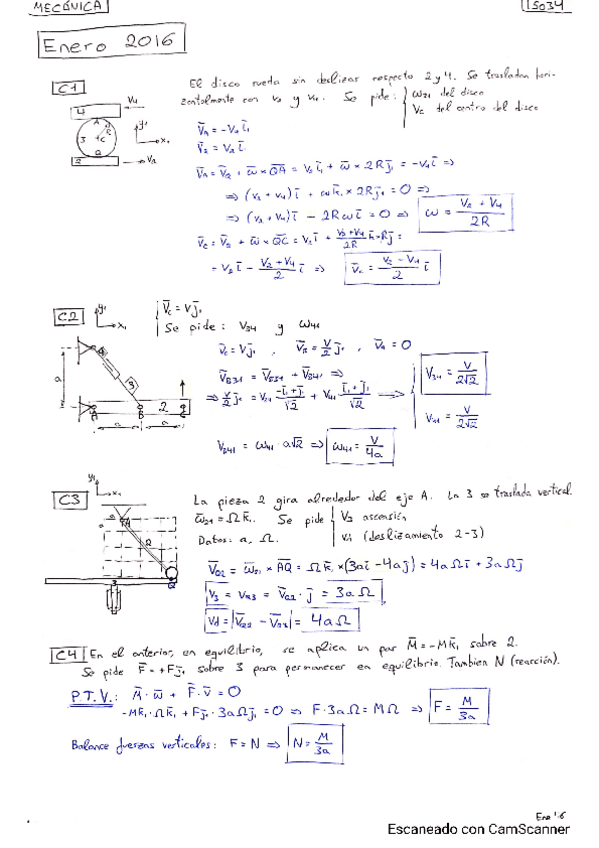 MECÁNICA
Enero 2016
C1
El disco rueda sin deslizar respecto 2 y 4. Se trasladan hori-
zontalmente con v₂ y v₄. Se pide: { ω₃₁ del disco
V_C del centro del disco
4
V₄
A
R
3
C
Q
2
V₂
y₁
x₁
V̄_A = -V₄ ī₁
V̄₂ = V₂ ī₁
V̄_A = V̄_Q + ω̄ × Q̄Ā = V₂ ī₁ + ω̄ × 2R j̄₁ = -V₄ ī ⇒
⇒ (V₂ + V₄) ī + ω k̄₁ × 2R j̄₁ = 0 ⇒
⇒ (V₂ + V₄) ī - 2Rω ī = 0 ⇒ ω = (V₂ + V₄)/2R
= V₂ ī - (V₂ + V₄)/2 ī ⇒ V̄_C = (V₂ - V₄)/2 ī
C2
y₁
x₁
{ V̄_C = V j̄₁
Se pide: V₃₄ y ω₄₁
V̄_C = V j̄₁ , V̄_B = V/2 j̄₁ , V̄_A = 0
V̄_B31 = V̄_B34 + V̄_B41 ⇒
⇒ V/2 j̄₁ = V₃₄ (-ī₁ + j̄₁)/√2 + V₄₁ (ī₁ + j̄₁)/√2 → { V₃₄ = V/2√2
V₄₁ = V/2√2
V_B41 = ω₄₁ · a√2 ⇒ ω₄₁ = V/4a
a
3
2
A
B
C
a
a
C3
y₁
x₁
La pieza 2 gira alrededor del eje A. La 3 se traslada vertical.
ω̄₂₁ = Ω k̄₁. Se pide { V₃ ascensión
Datos: a, Ω. (deslizamiento 2-3)
V̄_Q2 = ω̄₂₁ × ĀQ̄ = Ω k̄₁ × (3a ī - 4a j̄) = 4aΩ ī + 3aΩ j̄
V₃ = V_Q3 = V̄_Q2 · j̄ = 3aΩ
Vd = |V̄_Q2 - V̄_Q3| = 4aΩ
A
2
3
Q
C4
En el anterior, en equilibrio, se aplica un par M̄ = -M k̄₁ sobre 2.
Se pide F̄ = +F j̄₁ sobre 3 para permanecer en equilibrio. Tambien N (reacción).
P.T.V.: M̄ · ω̄ + F̄ · v̄ = 0
-M k̄₁ · Ω k̄₁ + F j̄₁ · 3aΩ j̄₁ = 0 ⇒ F · 3aΩ = MΩ ⇒ F = M/3a
Balance fuerzas verticales: F = N ⇒ N = M/3a
Escaneado con CamScanner